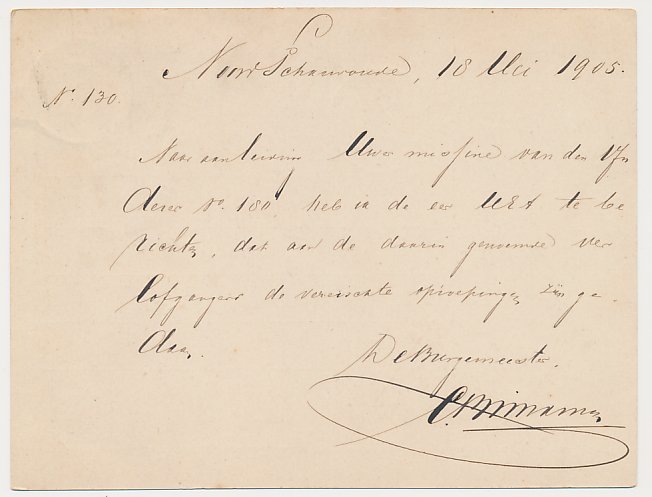 Noord Scharwoude, 18 Mei 1905.
No. 130.
Naar aanleiding Uwer missive van den 17n
dezer No. 180 heb ik de eer UEA te be
richten, dat aan de daarin genoemde ver
lofgangers de vereischte oproepingen zijn ge-
daan.
De Burgemeester,